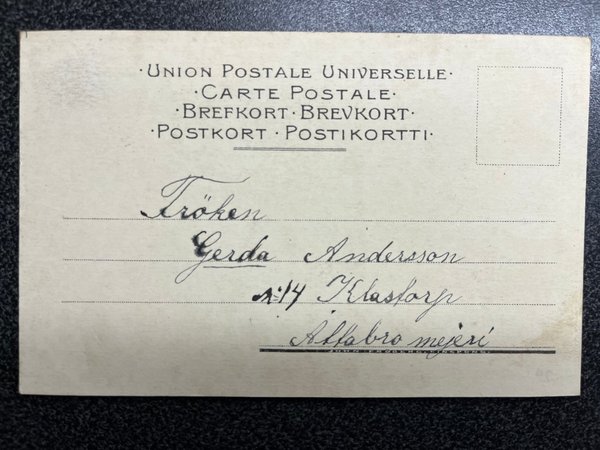 ·UNION POSTALE UNIVERSELLE·
·CARTE POSTALE·
·BREFKORT·BREVKORT·
·POSTKORT·POSTIKORTTI·
Fröken
Gerda Andersson
N:14 Klastorp
Attabro mejeri